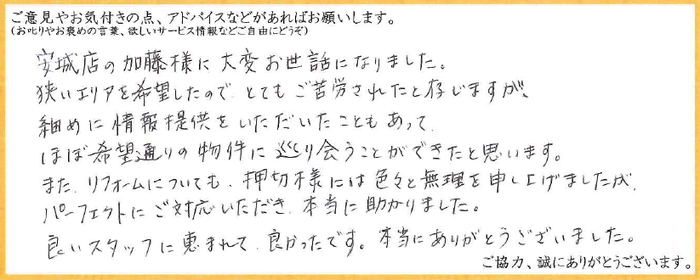 ご意見やお気付きの点、アドバイスなどがあればお願いします。
(お叱りやお褒めの言葉、欲しいサービス情報などご自由にどうぞ)
安城店の加藤様に大変お世話になりました。
狭いエリアを希望したので、とてもご苦労されたと存じますが、
細めに情報提供をいただいたこともあって、
ほぼ希望通りの物件に巡り会うことができたと思います。
また、リフォームについても、押切様には色々と無理を申し上げましたが、
パーフェクトにご対応いただき、本当に助かりました。
良いスタッフに恵まれて、良かったです。本当にありがとうございました。
ご協力、誠にありがとうございます。